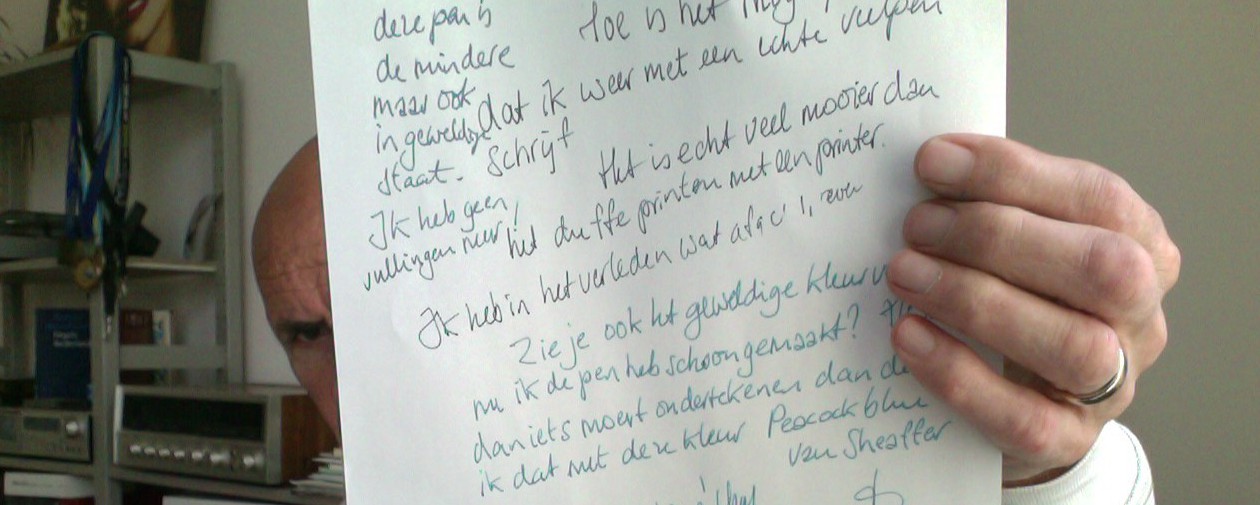 deze pen is
de mindere
maar ook
in geweldige
staat.
Ik heb geen
vullingen meer!
Hoe is het mog
dat ik weer met een echte vulpen
schrijf
Het is echt veel mooier dan
het duffe printen met een printer.
Ik heb in het verleden wat
Zie je ook het geweldige kleur
nu ik de pen heb schoongemaakt?
dan iets moet ondertekenen dan
ik dat met deze kleur Peacock blue
van Sheaffer